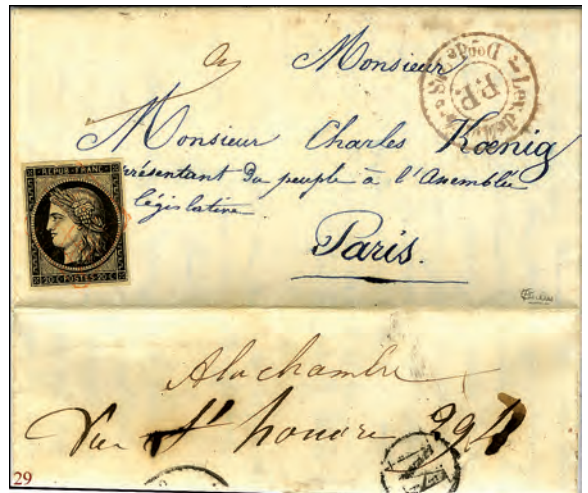 Monsieur
Monsieur Charles Kœnig
représentant du peuple à l'Assemblée
législative
Paris.
REPUB·FRANC
20 C POSTES 20 C
P.P.
A la chambre
Rue St honoré 294
29